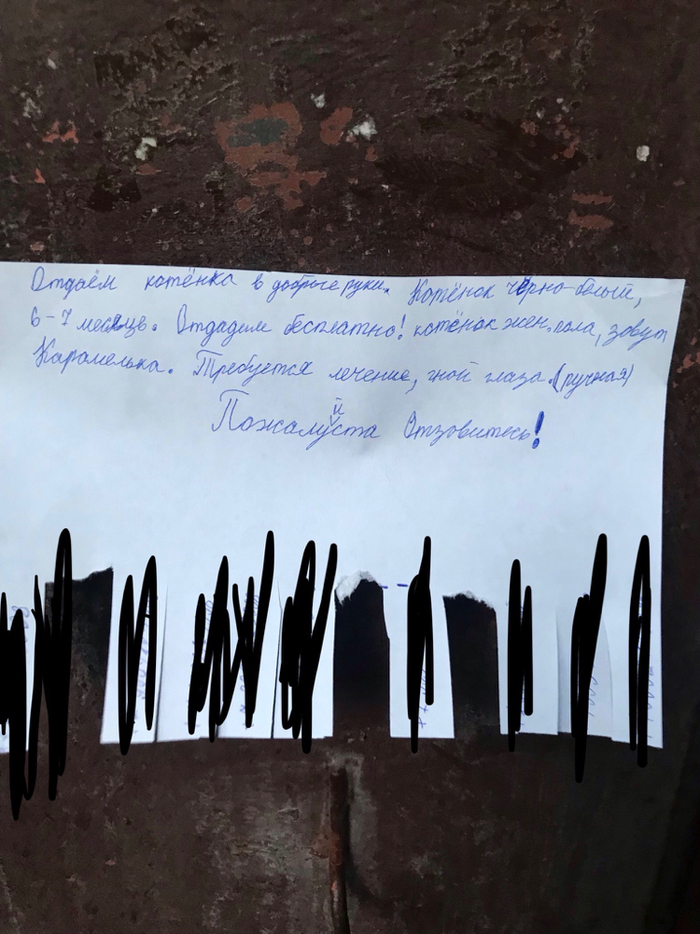 Отдаём котёнка в добрые руки. Котёнок чёрно-белый,
6-7 месяце. Отдадим бесплатно! котёнок жен.пола, зовут
Карамелька. Требуется лечение, гной глаза.(ручная)
Пожалуйста Отзовитесь!